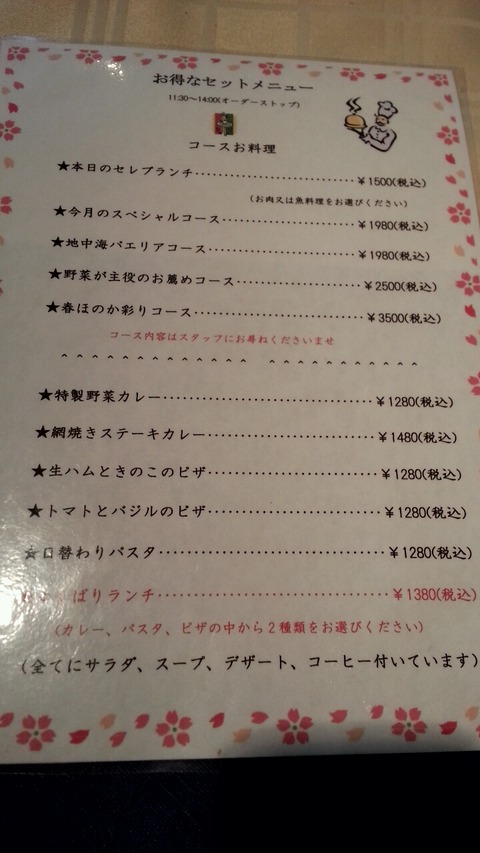 お得なセットメニュー
11:30～14:00(オーダーストップ)
コースお料理
★本日のセレブランチ‥‥‥‥‥‥‥‥‥￥1500(税込)
(お肉又は魚料理をお選びください)
★今月のスペシャルコース‥‥‥‥‥‥‥￥1980(税込)
★地中海パエリアコース‥‥‥‥‥‥‥‥￥1980(税込)
★野菜が主役のお薦めコース‥‥‥‥‥‥￥2500(税込)
★春ほのか彩りコース‥‥‥‥‥‥‥‥‥￥3500(税込)
コース内容はスタッフにお尋ねくださいませ
★特製野菜カレー‥‥‥‥‥‥‥‥‥‥‥￥1280(税込)
★網焼きステーキカレー‥‥‥‥‥‥‥‥￥1480(税込)
★生ハムときのこのピザ‥‥‥‥‥‥‥‥￥1280(税込)
★トマトとバジルのピザ‥‥‥‥‥‥‥‥￥1280(税込)
★日替わりパスタ‥‥‥‥‥‥‥‥‥‥‥￥1280(税込)
ばりランチ‥‥‥‥‥‥‥‥‥‥‥￥1380(税込)
(カレー、パスタ、ピザの中から２種類をお選びください)
(全てにサラダ、スープ、デザート、コーヒー付いています)